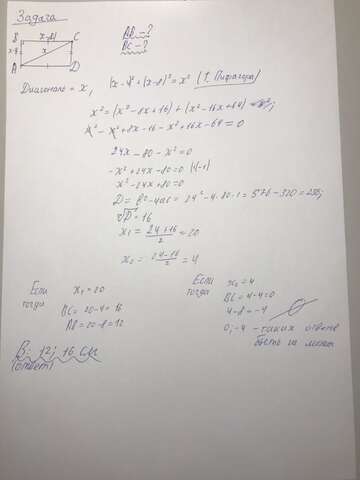 Задача
B x-8 C
x-4 x
A D
AB - ?
BC - ?
Диагональ = x, (x-4)²+(x-8)² = x² (т. Пифагора)
x² = (x²-8x+16) + (x²-16x+64)
x² - x² + 8x - 16 - x² + 16x - 64 = 0
24x - 80 - x² = 0
-x² + 24x - 80 = 0 (·(-1))
x² - 24x + 80 = 0
D = b² - 4ac = 24² - 4·80·1 = 576 - 320 = 256;
√D = 16
x₁ = 24+16/2 = 20
x₂ = 24-16/2 = 4
Если x₁ = 20
тогда
BC = 20-4 = 16
AB = 20-8 = 12
Если x₂ = 4
тогда BC = 4-4=0
4-8 = -4
0; -4 - таких ответов
быть не может
В: 12; 16 см
(ответ)